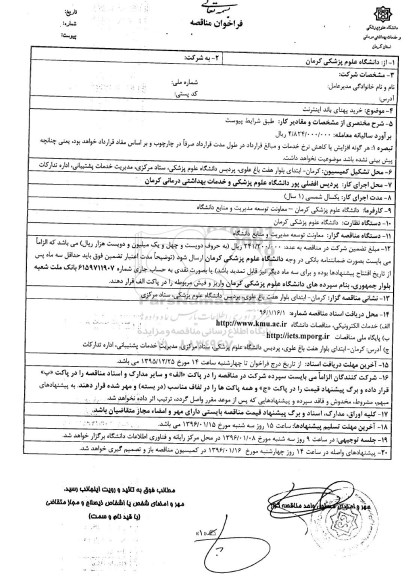 بسمه تعالی
فراخوان مناقصه
دانشگاه علوم پزشکی
و خدمات بهداشتی درمانی
استان کرمان
تاریخ:
شماره:
پیوست:
۱- از: دانشگاه علوم پزشکی کرمان
۲- به شرکت:
۳- مشخصات شرکت:
نام و نام خانوادگی مدیرعامل:
شماره ملی:
کد پستی:
۴- موضوع: خرید پهنای باند اینترنت
۵- شرح مختصری از مشخصات و مقادیر کار: طبق شرایط پیوست
برآورد سالیانه معامله: ۴/۸۲۴/۰۰۰/۰۰۰ ریال
تبصره ۱: هر گونه افزایش یا کاهش نرخ خدمات و مبالغ قرارداد در طول مدت قرارداد صرفاً در چارچوب و بر اساس مفاد قرارداد خواهد بود، یعنی چنانچه
پیش بینی نشده باشد موضوعیت نخواهد داشت.
۶- محل تشکیل کمیسیون: کرمان- ابتدای بلوار هفت باغ علوی، پردیس دانشگاه علوم پزشکی، ستاد مرکزی، مدیریت خدمات پشتیبانی، اداره تدارکات
۷- محل اجرای کار: پردیس افضلی پور دانشگاه علوم پزشکی و خدمات بهداشتی درمانی کرمان
۸- مدت اجرای کار: یکسال شمسی (۱ سال)
۹- کارفرما: دانشگاه علوم پزشکی کرمان – معاونت توسعه مدیریت و منابع دانشگاه
۱۰- دستگاه نظارت: دانشگاه علوم پزشکی کرمان
۱۱- دستگاه مناقصه گزار: معاونت توسعه مدیریت و منابع دانشگاه
۱۲- مبلغ تضمین شرکت در مناقصه به عدد: ۲۴۱/۲۰۰/۰۰۰ ریال (به حروف دویست و چهل و یک میلیون و دویست هزار ریال) می باشد که الزاماً
می بایست بصورت ضمانتنامه بانکی در وجه دانشگاه علوم پزشکی کرمان ارسال شود (توضیحاً مدت اعتبار تضمین فوق باید حداقل سه ماه پس
از تاریخ افتتاح پیشنهادها بوده و برای سه ماه دیگر نیز قابل تمدید باشد) یا بصورت نقدی به حساب جاری شماره ۶۱۵۹۷۱۱۹۰۷ بانک ملت شعبه
بلوار جمهوری، بنام سپرده های دانشگاه علوم پزشکی کرمان واریز و فیش مربوطه را در پاکت الف قرار دهند.
۱۳- نشانی مناقصه گزار: کرمان- ابتدای بلوار هفت باغ علوی، پردیس دانشگاه علوم پزشکی، ستاد مرکزی
۱۴- محل دریافت اسناد مناقصه شماره: ۹۶/۱/۱۶/۱
الف) خدمات الکترونیکی، مناقصات دانشگاه http://www.kmu.ac.ir
ب) پایگاه ملی مناقصات http://iets.mporg.ir
ج) آدرس: کرمان-ابتدای بلوار هفت باغ علوی، پردیس دانشگاه علوم پزشکی، ستاد مرکزی، مدیریت خدمات پشتیبانی، اداره تدارکات
۱۵- آخرین مهلت دریافت اسناد: از تاریخ درج فراخوان تا چهارشنبه ساعت ۱۴ مورخ ۱۳۹۵/۱۲/۲۵ می باشد.
۱۶- شرکت کنندگان الزاماً می بایست سپرده شرکت در مناقصه را در پاکت «الف» و سایر مدارک و اسناد مناقصه را در پاکت «ب»
قرار داده و برگ پیشنهاد قیمت را در پاکت «ج» و همه پاکت ها را در لفاف مناسب (در بسته) و مهر شده قرار دهند. به پیشنهادهای
مبهم، مشروط، مخدوش و فاقد سپرده و پیشنهادهایی که پس از موعد مقرر واصل گردد، ترتیب اثر داده نخواهد شد.
۱۷- کلیه اوراق، مدارک، اسناد و برگ پیشنهاد قیمت مناقصه بایستی دارای مهر و امضاء مجاز متقاضیان باشد.
۱۸- آخرین مهلت تسلیم پیشنهادها: ساعت ۱۵ روز سه شنبه مورخ ۱۳۹۶/۰۱/۱۵ می باشد.
۱۹- جلسه توجیهی: در ساعت ۹ روز سه شنبه مورخ ۱۳۹۶/۰۱/۰۸ در محل مرکز رایانه و فناوری اطلاعات دانشگاه برگزار خواهد شد.
۲۰- پیشنهادهای واصله در ساعت ۱۴ روز چهارشنبه مورخ ۱۳۹۶/۰۱/۱۶ در کمیسیون مناقصه باز و تصمیم گیری خواهد شد.
مطالب فوق به تائید و رویت اینجانب رسید.
مهر و امضای شخص یا اشخاص ذیصلاح و مجاز متقاضی
(با قید نام و سمت)
مهر و امضای مسئول واحد مناقصه گزار